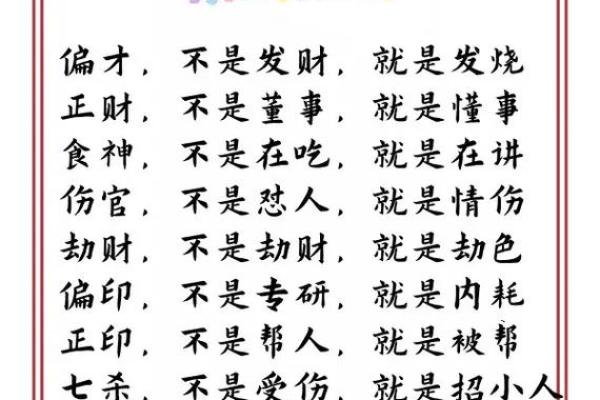 偏才，不是发财，就是发烧
正财，不是董事，就是懂事
食神，不是在吃，就是在讲
伤官，不是怼人，就是情伤
劫财，不是劫财，就是劫色
偏印，不是专研，就是内耗
正印，不是帮人，就是被帮
七杀，不是受伤，就是招小人